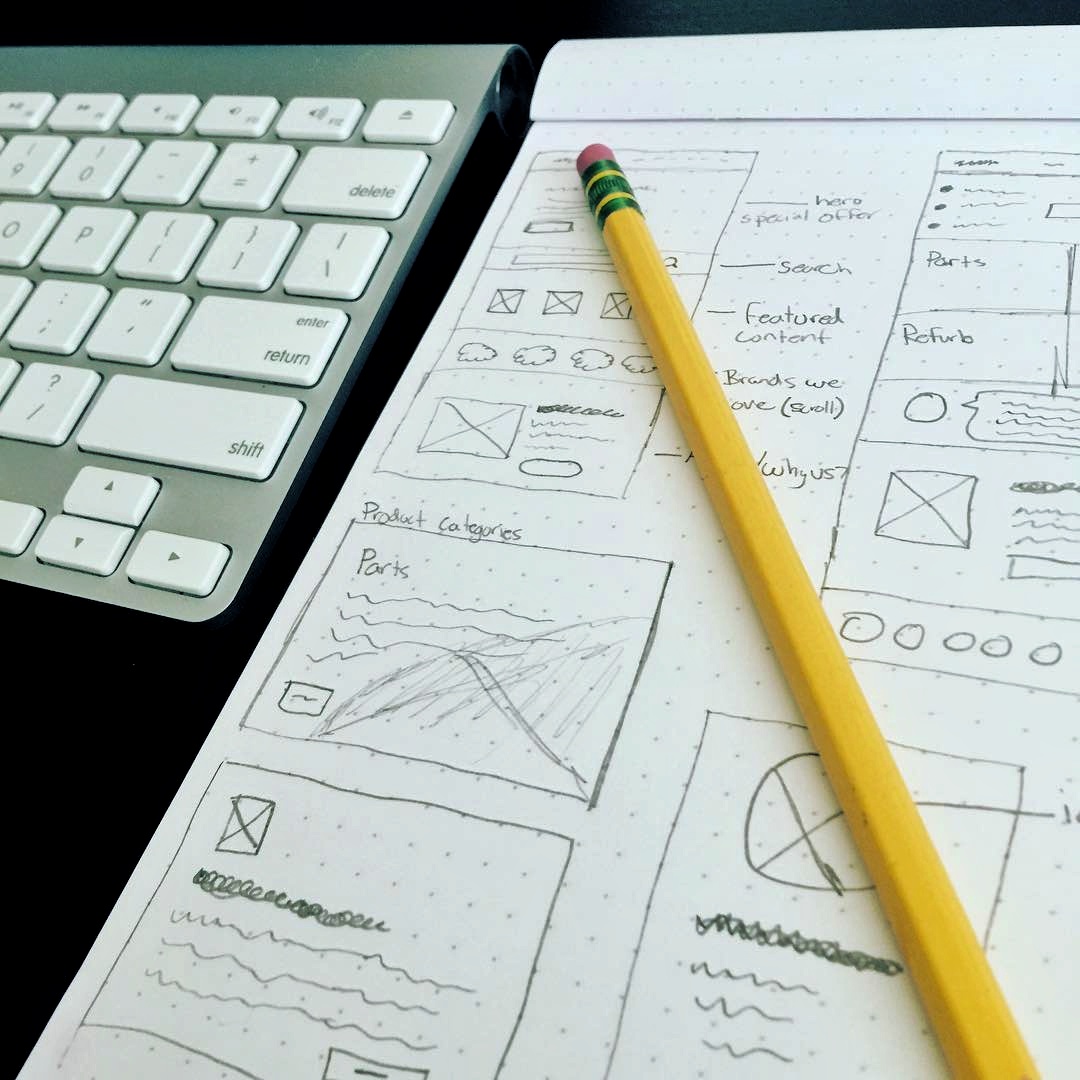 delete
enter
return
shift
9
0
-
+
=
O
P
{
[
}
]
|
\
:
;
"
'
?
/
hero
special offer
search
Featured
content
Brands we
ove (scroll)
/why us?
Product categories
Parts
Parts
Refurb